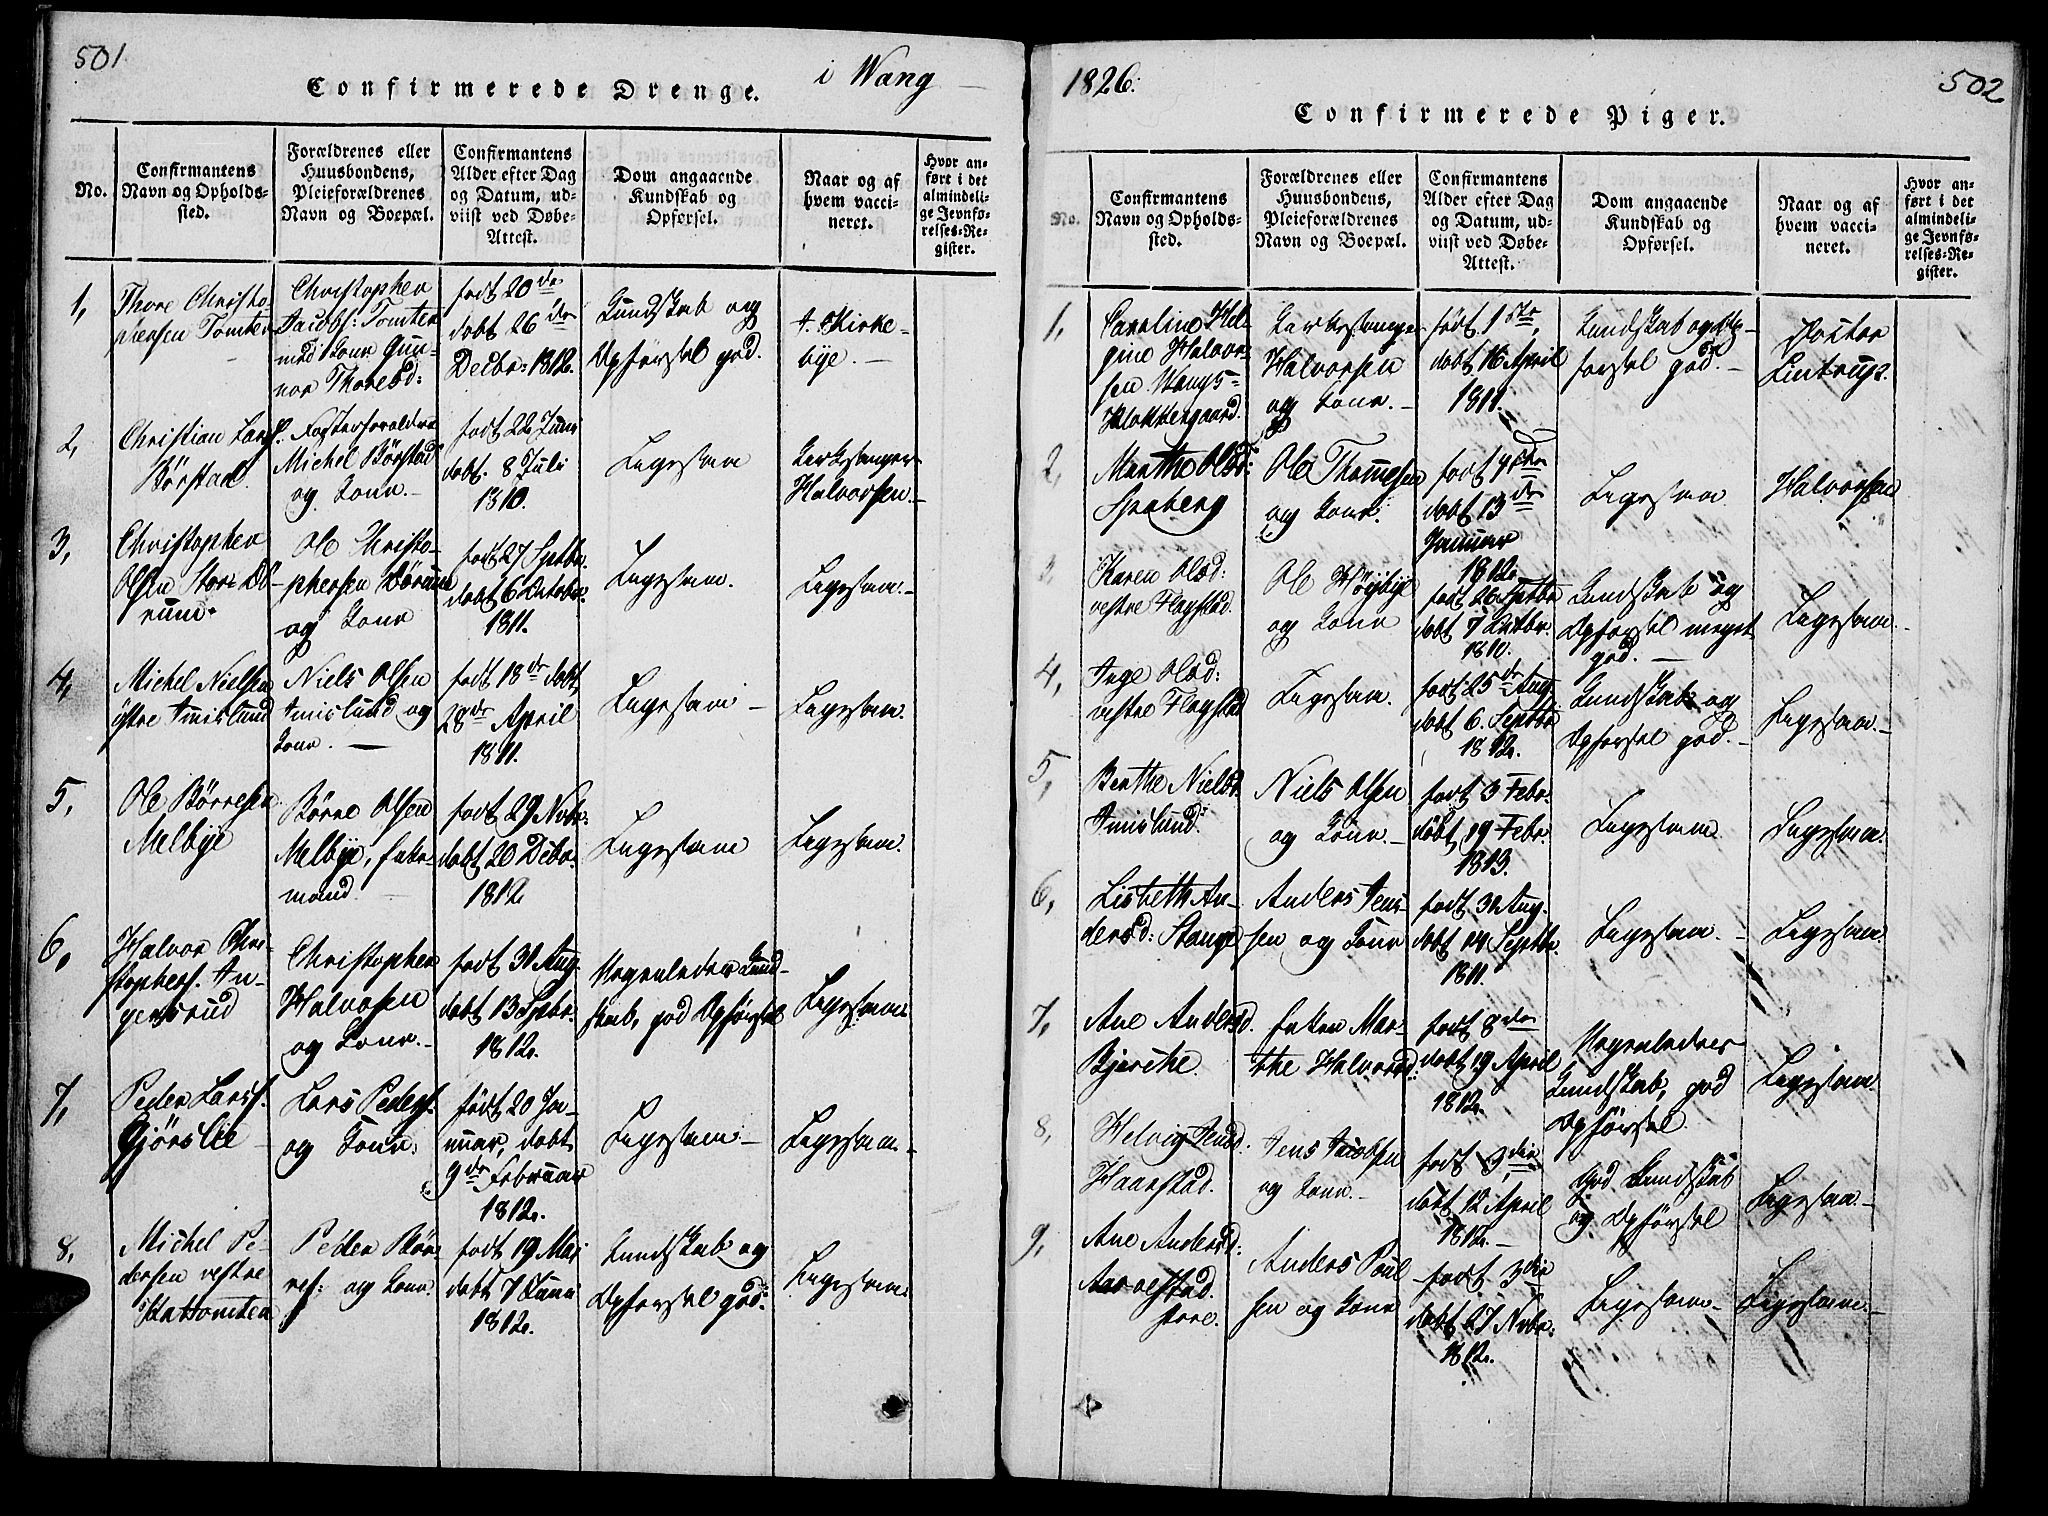 501
Confirmerede Drenge. i Wang
No.
Confirmantens
Navn og Opholds-
sted.
Forældrenes eller
Huusbondens,
Pleieforældrenes
Navn og Boepæl.
Confirmantens
Alder efter Dag
og Datum, ud-
viist ved Døbe-
Attest.
Dom angaaende
Kundskab og
Opførsel.
Naar og af
hvem vacci-
neret.
Hvor an-
ført i det
almindeli-
ge Jevnfø-
relses-Re-
gister.
1,
Thore Christo-
phersen Tomten
Christopher
Jacobs: Tomten
med Kone Gun-
nor Thoresd:
født 20de
døbt 26de
Decbr. 1812.
Kundskab og
Opførsel god.
A. Kirke-
bye.
2,
Christian Larss.
Børstad
Fosterforældre
Michel Børstad
og Kone.
født 22 Juni
døbt 8 Juli
1810.
Ligesaa
Kirkesanger
Halvorsen.
3,
Christopher
Olsen Store Dø-
rum
Ole Christo-
phersen Dørum
og Kone
født 27 Septbr.
døbt 6 Octobr.
1811.
Ligesaa.
Ligesaa.
4,
Michel Nielsen
østre Imislund
Niels Olsen
Imislund og
Kone.
født 18de døbt
28de April
1811.
Ligesaa
Ligesaa.
5,
Ole Børresen
Melbye
Børre Olsen
Melbye, Enke-
mand
født 29 Novbr.
døbt 20 Decbr.
1812
Ligesaa
Ligesaa.
6,
Halvor Chri-
stophers. An-
gersrud
Christopher
Halvorsen
og Kone.
født 30 Aug.
døbt 13 Septbr.
1812.
Maadelig Kund-
skab, god Opførsel
Ligesaa.
7,
Peder Larss.
Gjørslie
Lars Peders.
og Kone.
født 20 Ja-
nuar, døbt
9de Februar
1812.
Ligesaa.
Ligesaa.
8,
Michel Pe-
dersen vestre
Peder Bør-
res: og Kone
født 19 Mai
døbt 7 Juni
1812.
Kundskab og
Opførsel god.
Ligesaa.
1826. 502
Confirmerede Piger.
No.
Confirmantens
Navn og Opholds-
sted.
Forældrenes eller
Huusbondens,
Pleieforældrenes
Navn og Boepæl.
Confirmantens
Alder efter Dag
og Datum, ud-
viist ved Døbe-
Attest.
Dom angaaende
Kundskab og
Opførsel.
Naar og af
hvem vacci-
neret.
Hvor an-
ført i det
almindeli-
ge Jevnfø-
relses-Re-
gister.
1,
Caroline Hel-
gine Halvor-
sen Wangs-
Klokkergaard.
Kirkesanger
Halvorsen
og Kone.
født 1ste,
døbt 16 April
1811.
Kundskab og Op-
førsel god.
Pastor
Lintrup.
2,
Marthe Olsd:
Spaberg
Ole Thomesen
og Kone.
døbt 13de
Januar
1812.
Ligesaa
Halvorsen
3,
Karen Olsd:
vestre Flagstad
Ole Høybye
og Kone
født 26 Septbr
døbt 7 Octbr.
1810.
Kundskab og
Opførsel meget
god.
Ligesaa.
4,
Inge Olsd:
vestre Flagstad
Ligesaa.
født 25de Aug
døbt 6. Septbr
1812.
Kundskab og
Opførsel god.
Ligesaa.
5,
Berthe Nielsd.
Imislund.
Niels Olsen
og Kone.
født 3 Febr.
døbt 19 Febr.
1813.
Ligesaa
Ligesaa.
6,
Lisbeth An-
dersd: Stange
Anders Jens-
sen og Kone
døbt 14 Septbr.
1811.
Ligesaa.
Ligesaa.
7,
Ane Andersd.
Bjerche.
Enken Mar-
the Halvorsd:
født 8de
døbt 19 April
1812.
Kundskab, god
Opførsel
Ligesaa.
8,
Helvig Jensd.
Haarstad.
Jens Jacobsen
og Kone.
født 3die
døbt 12 April
1812.
God Kundskab
og Opførsel
Ligesaa.
9,
Ane Andersd:
Anders Poul
sen og Kone
født 3die
døbt 27 Novbr.
1812.
Ligesaa.
Ligesaa.